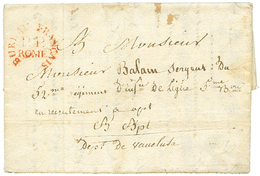 BUREAU FRANÇAIS
ROME
A Monsieur
Monsieur Balam Sergent du
52me régiment d'infie de ligne
en recrutement a apt
A Apt
Dept de vaucluse